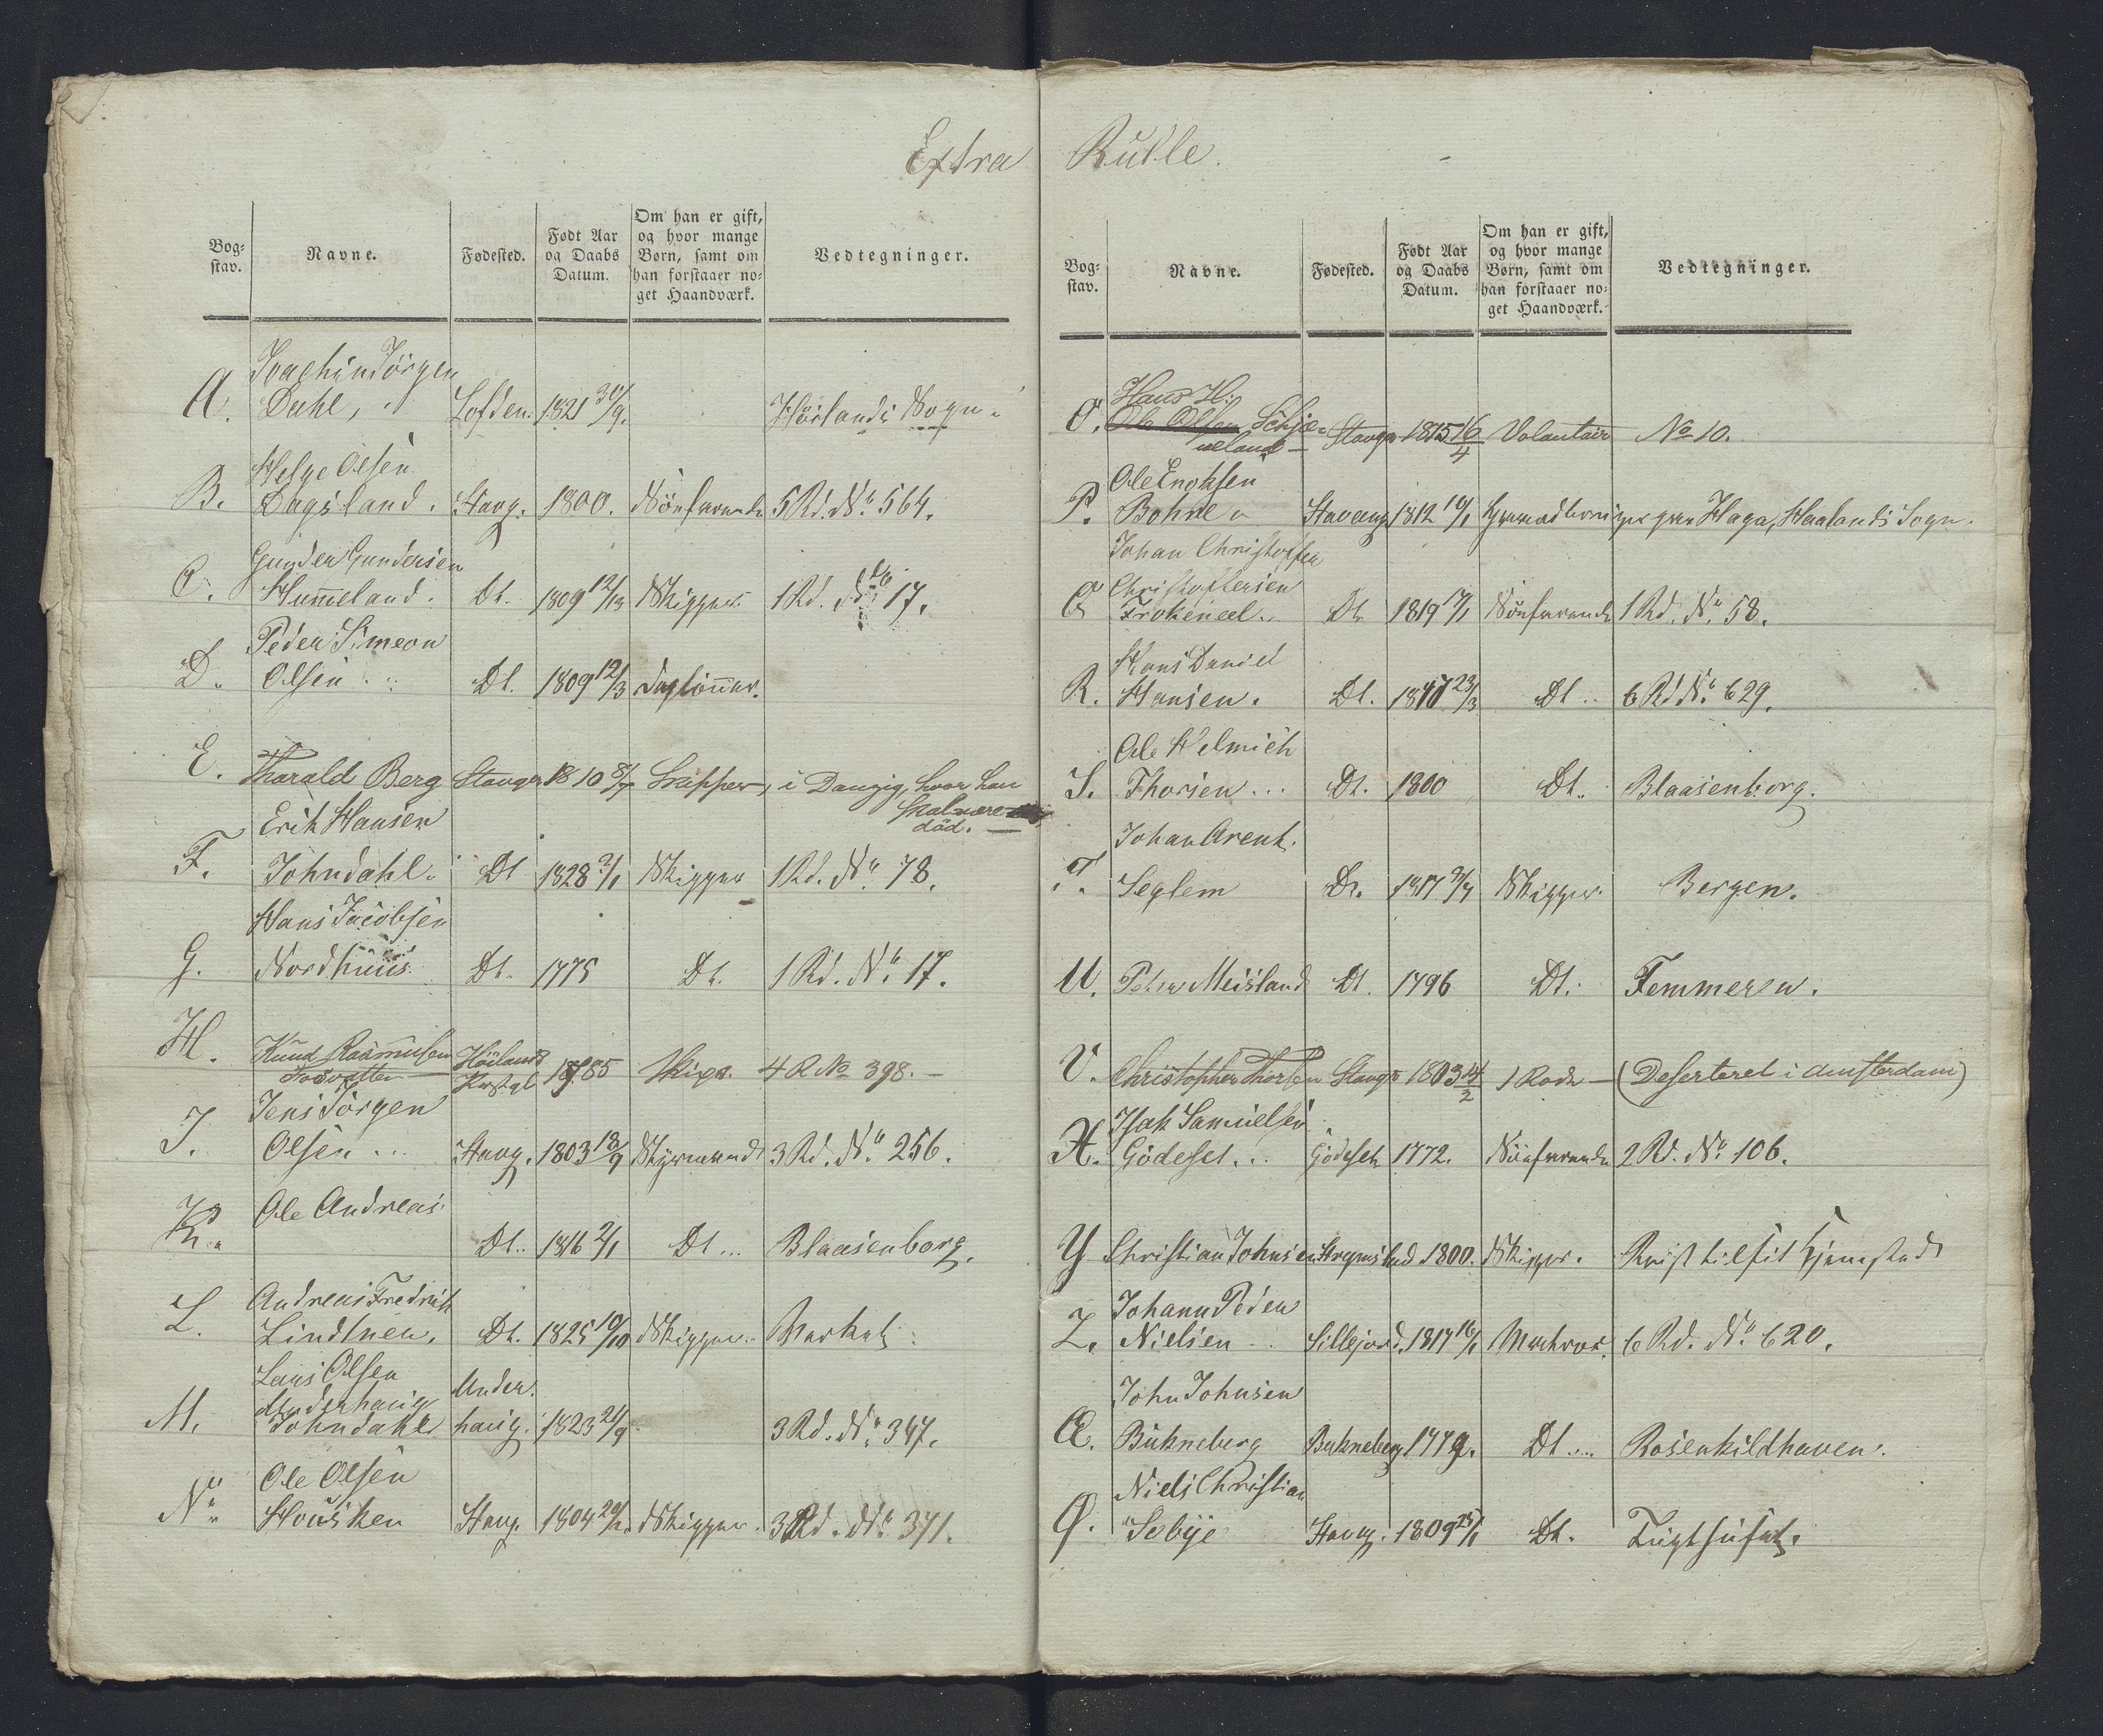 Extra Rulle.
Bog-
stav.
Navne.
Fødested.
Født Aar
og Daabs
Datum.
Om han er gift,
og hvor mange
Børn, samt om
han forstaaer no-
get Haandværk.
Vedtegninger.
Joachim Jörgen
A. Dahl, Lofden. 1821 30/9. Sogn
Helge Olsen
B. Dagsland. Stavg. 1800. Sönfarende 5 Rd. No 564.
Gunder Gundersen
C. Hummeland. Dt. 1809 Skipper 1 Rd. No 17.
Peder Simeon
D. Olsen Dt. 1809 12/3 Daglönner.
E. Tharald Berg Stavgr 1810 8/7 Skipper, i Danzig, hvor han
skal være
död.
Erik Hansen
F. Johndahl. Dt 1828 2/1 Skipper 1 Rd. No 78.
Hans Jacobsen
G. Nordhuus Dt. 1775 Dt. 1 Rd. No 17.
H. Knud Rasmussen Höilands
Fosvatten Præstgl 1785 Skipr. 4 R No 398.
Jens Jörgen
J. Olsen Stavg. 1803 18/9 Styrmand 3 Rd. No 256.
K. Ole Andreas
Dt. 1816 2/1 Dt Blaasenborg.
Andreas Fredrik
L. Lindtner. Dt. 1825 10/10 Skipper
Lars Olsen
Underhaug Under.
M. Johndahl haug. 1823 21/9 3 Rd. No 347.
Ole Olsen
N. Housken Stavg. 1804 Skipper. 3 Rd. No 371.
Bog-
stav.
Navne.
Fødested.
Født Aar
og Daabs
Datum.
Om han er gift,
og hvor mange
Børn, samt om
han forstaaer no-
get Haandværk.
Vedtegninger.
Hans H:
O. Ole Olsen Schjæ-
veland Stavgr 1815 16/4 Volantair No 10.
Ole Enoksen
P. Bohne Stavang 1812 Haga, Haalands Sogn.
Johan Christoffer
Christoffersen
Q Frokeneel Dt. 1819 Sönfarende 1 Rd. No 58.
Hans Daniel
R. Hansen. Dt. 23/3 Dt 6 Rd No 629.
Ole Helmich
S. Thorsen Dt. 1800 Dt. Blaasenborg.
Johan Arent.
T. Seglem Dt. 1817 Skipper Bergen.
U. Peter Meisland Dt. 1796 Dt. Femmeren.
V. Christopher Thorsen Stavgr 1803 14/2 1 Rode (Deserteret i Amsterdam)
Isak Samuelsen
X. Gödeset Gödeset 1772. Sönfarende 2 Rd. No 106.
Y Christian Johnsen 1800. Skipper. Reist til sit Hjemsted
Johann Peder
Z. Nielsen Sillejord. 1817 16/1 Matros. 6 Rd. No 620.
John Johnsen
Æ. Bukneberg Bukneberg 1779. Dt Rosenkildhaven.
Niels Christian
Ø. Sebye Stavg. 1809 25/1 Dt. Tugthuset.